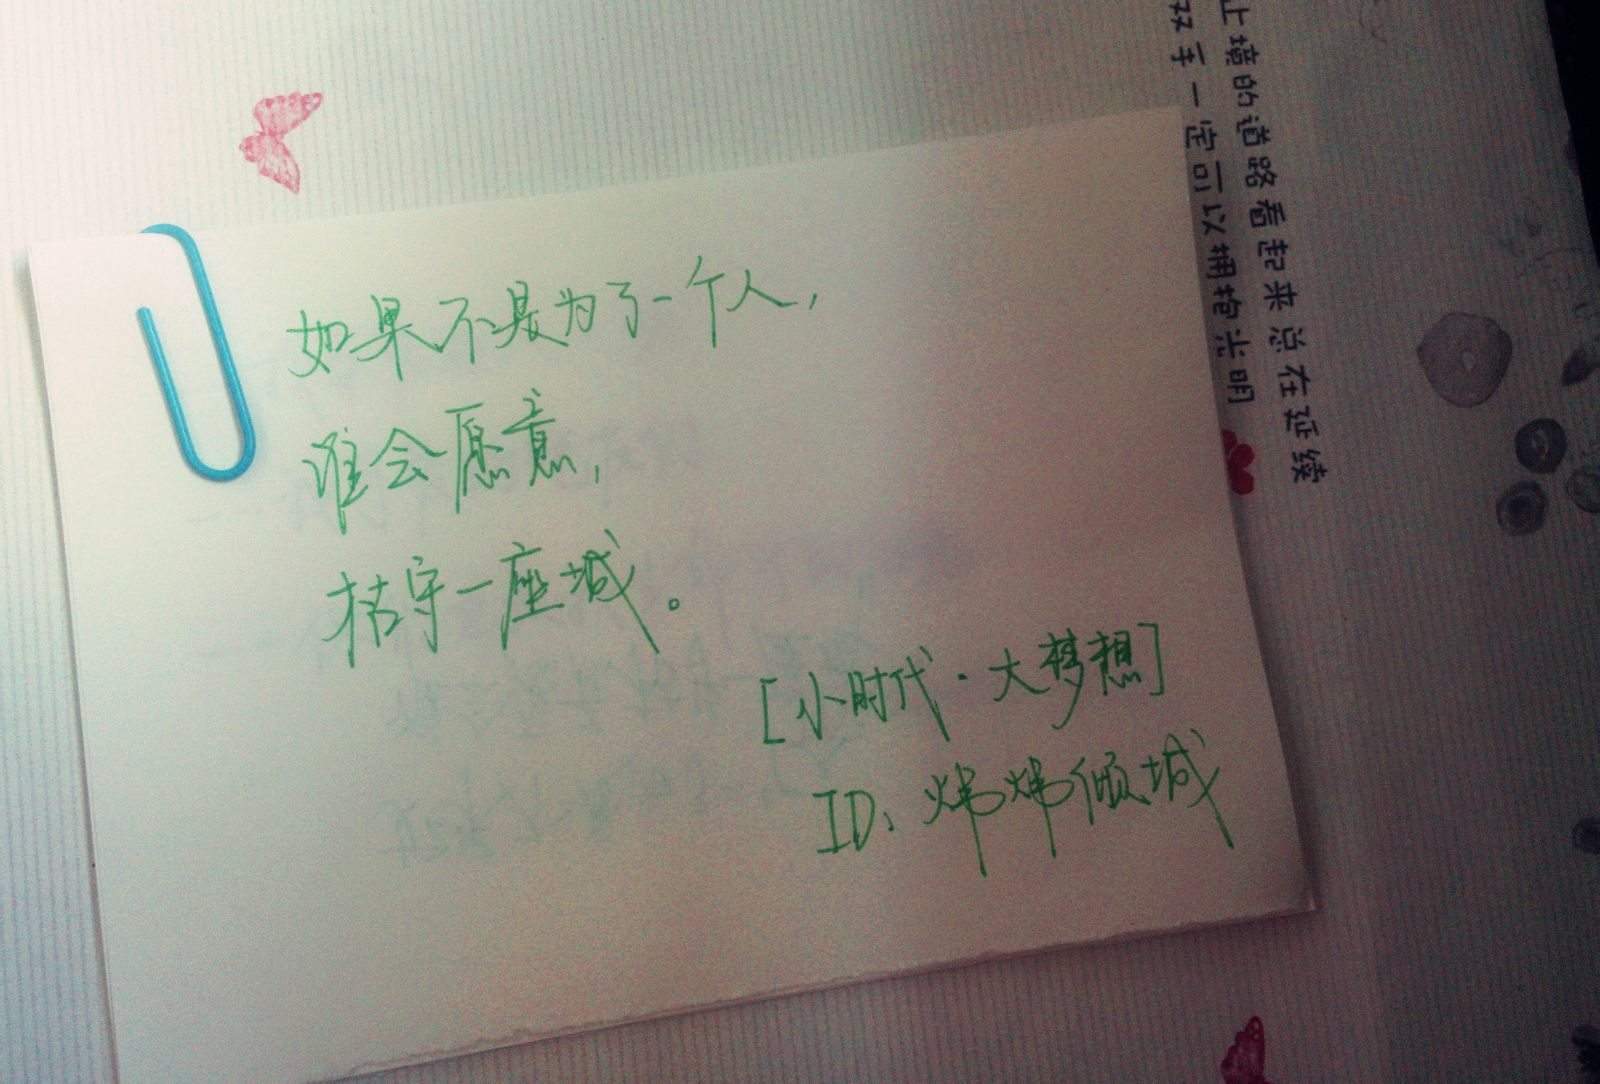 如果不是为了一个人,
谁会愿意,
枯守一座城。
[小时代·大梦想]
ID、炜炜倾城
止境的道路看起来总在延续
双手一定可以拥抱光明